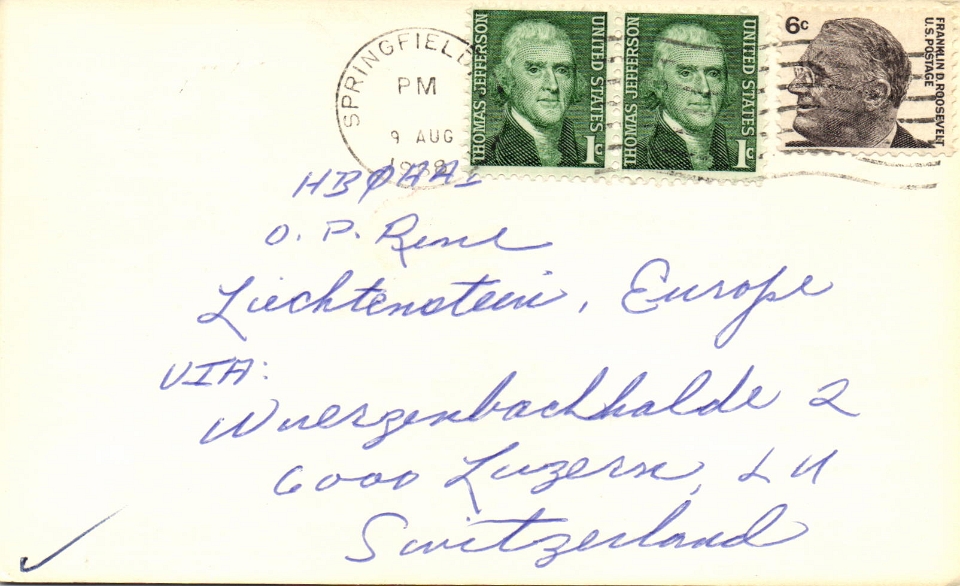 SPRINGFIELD
PM
9 AUG
1968
THOMAS JEFFERSON
UNITED STATES
1c
THOMAS JEFFERSON
UNITED STATES
1c
6c
FRANKLIN D. ROOSEVELT
U.S. POSTAGE
HBØAAI
O. P. René
Liechtenstein, Europe
VIA:
Wuerzenbachhalde 2
6000 Luzern, LU
Switzerland